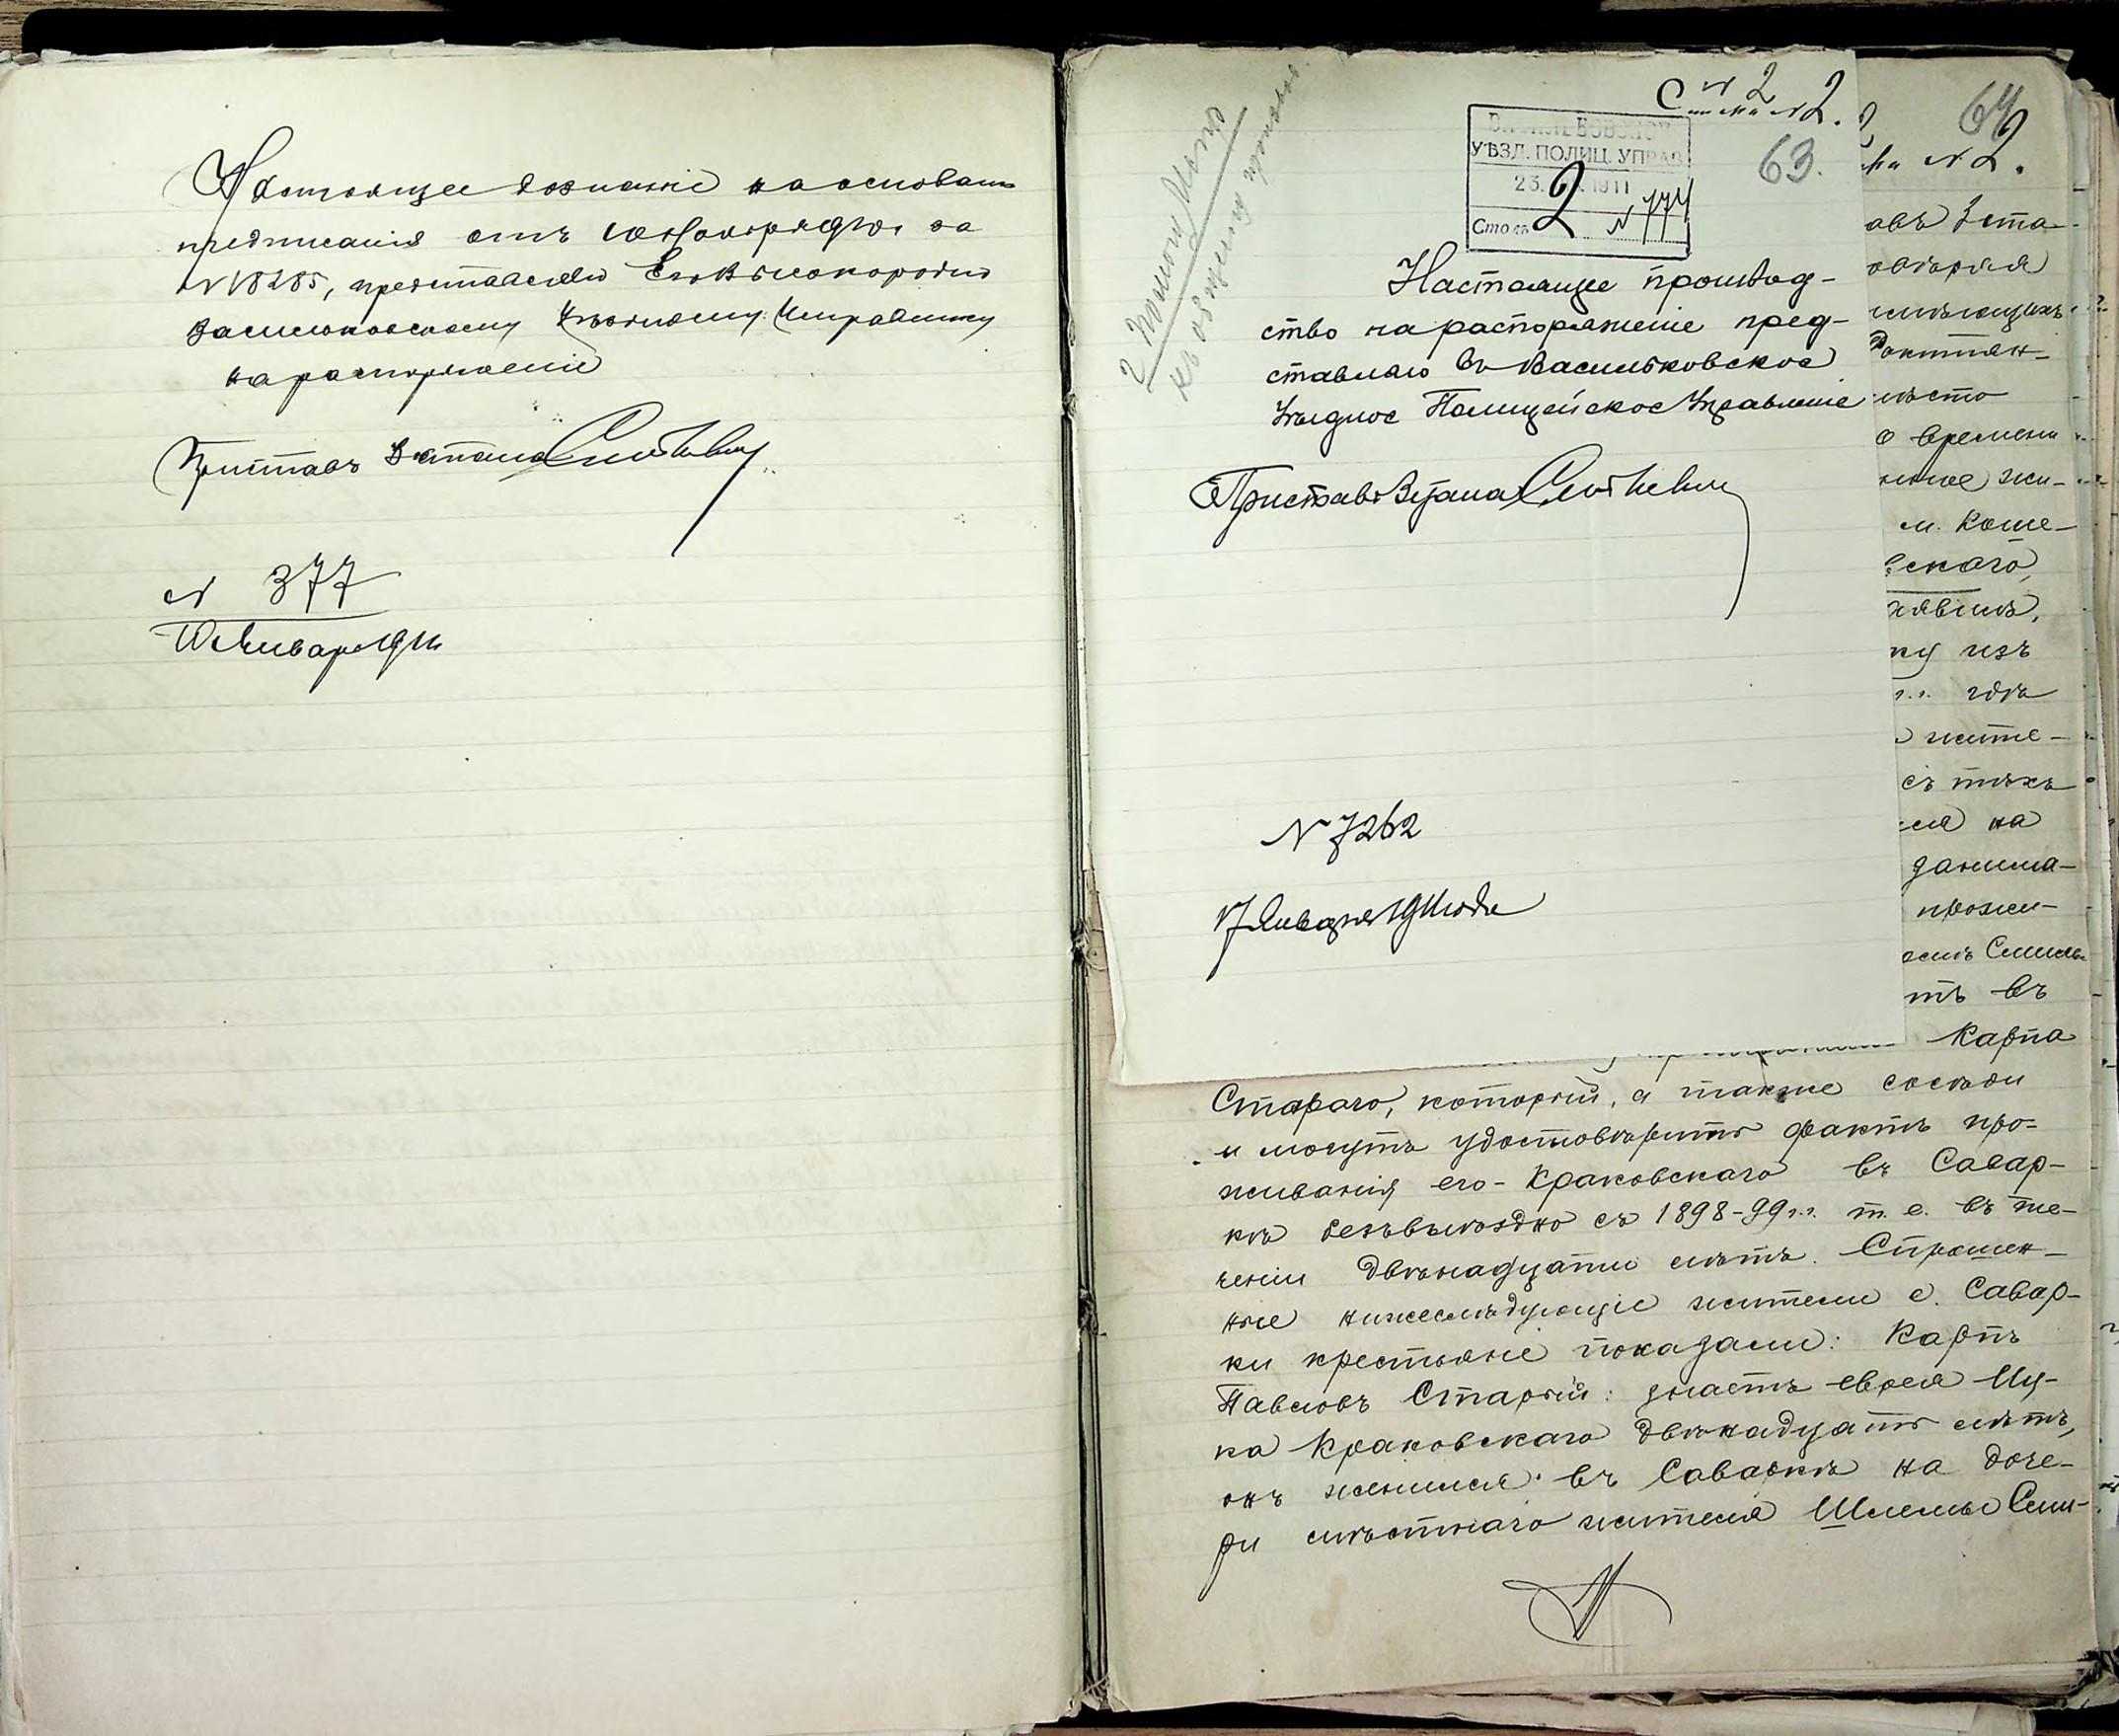 Настоящее дознаніе на основаніи
предписанія отъ 10 Января 1911 г. за
№ 18285, представляю Его Высокородію
Васильковскому Уѣздному Исправнику
на распоряженіе
Приставъ 3 стана
№ 377
10 Января 1911
С. № 2
63.
УѢЗД. ПОЛИЦ. УПРАВ
23. 1911
Столъ 2 № 774
Настоящее производ-
ство на распоряженіе пред-
ставляю въ Васильковское
Уѣздное Полицейское Управленіе
Приставъ 3 стана
№ 7262
17 Января 1911 года
64
№ 2.
авъ 3 ста-
мѣсто
о времени
жи-
м. Коше-
скаго
заявилъ,
изъ
г.г. года
жите-
съ тѣхъ
на
занима-
прожи-
тъ въ
Карпа
Стараго, который, а также сосѣди
и могутъ удостовѣрить фактъ про-
живанія его - Краковскаго въ Савар-
кѣ безвыѣздно съ 1898-99 г.г. т. е. въ те-
ченіи двѣнадцати лѣтъ. Спрошен-
ные нижеслѣдующіе жители с. Савар-
ки крестьяне показали: Карпъ
Павловъ Старый: знаетъ еврея Иц-
ка Краковскаго двѣнадцать лѣтъ,
онъ женился въ Саваркѣ на доче-
ри мѣстнаго жителя Шлемы Сми-